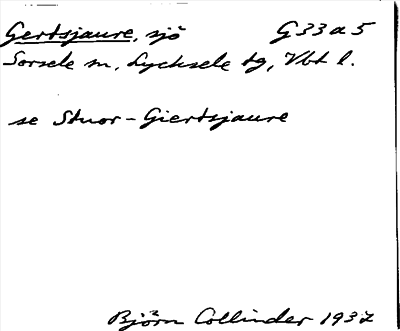 Gertsjaure, sjö G33a5
Sorsele sn, Lycksele tg, Vbt l.
se Stuor-Giertsjaure
Björn Collinder 1937